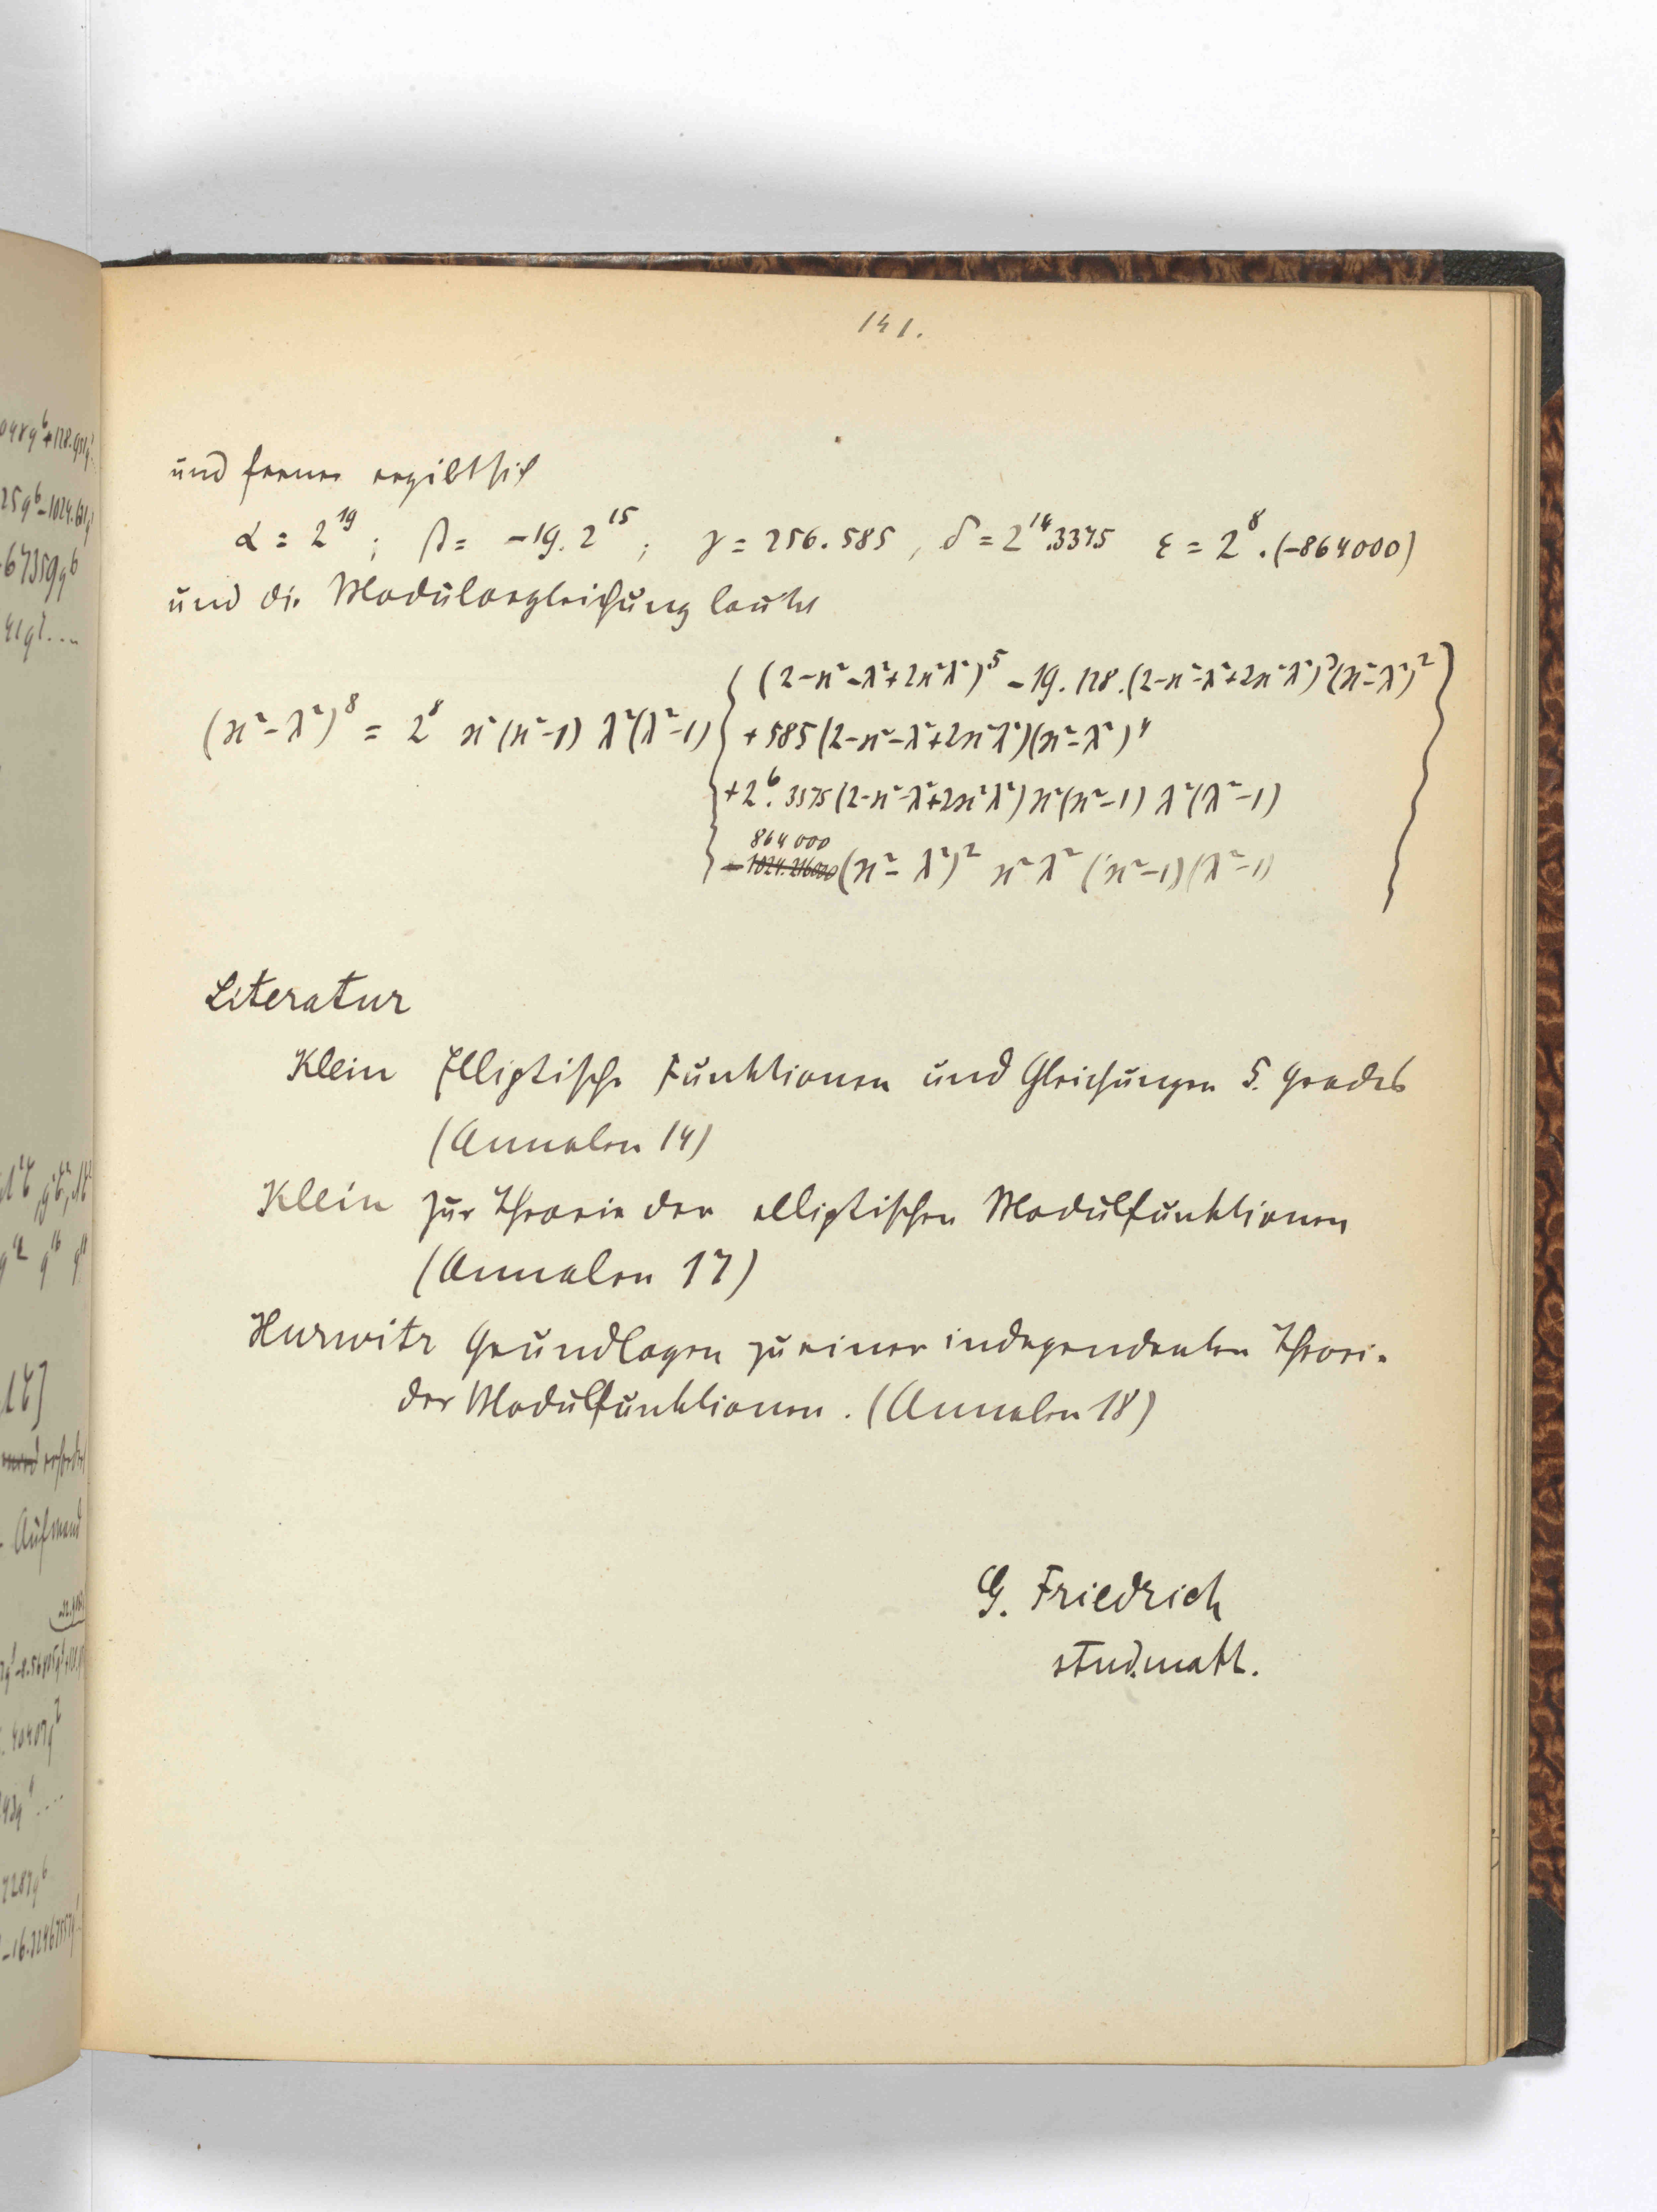 141.
und ferner ergibt sich
α = 2^19; β = -19. 2^15; γ = 256. 585, δ = 2^14. 3375 ε = 2^8. (-864000)
und die Modulargleichung lautet
(κ²-λ²)^8 = 2^8 κ²(κ²-1) λ²(λ²-1) { (2-κ²-λ²+2κ²λ²)^5 - 19. 128. (2-κ²-λ²+2κ²λ²)^3 (κ²-λ²)^2 }
+ 585 (2-κ²-λ²+2κ²λ²)(κ²-λ²)^4
+ 2^6. 3375 (2-κ²-λ²+2κ²λ²) κ²(κ²-1) λ²(λ²-1)
864 000
- 1024. 216000 (κ²-λ²)^2 κ²λ² (κ²-1)(λ²-1)
Literatur
Klein Elliptische Funktionen und Gleichungen 5. Grades
(Annalen 14)
Klein Zur Theorie der elliptischen Modulfunktionen
(Annalen 17)
Hurwitz Grundlagen zu einer independenten Theorie
der Modulfunktionen. (Annalen 18)
G. Friedrich
stud. math.